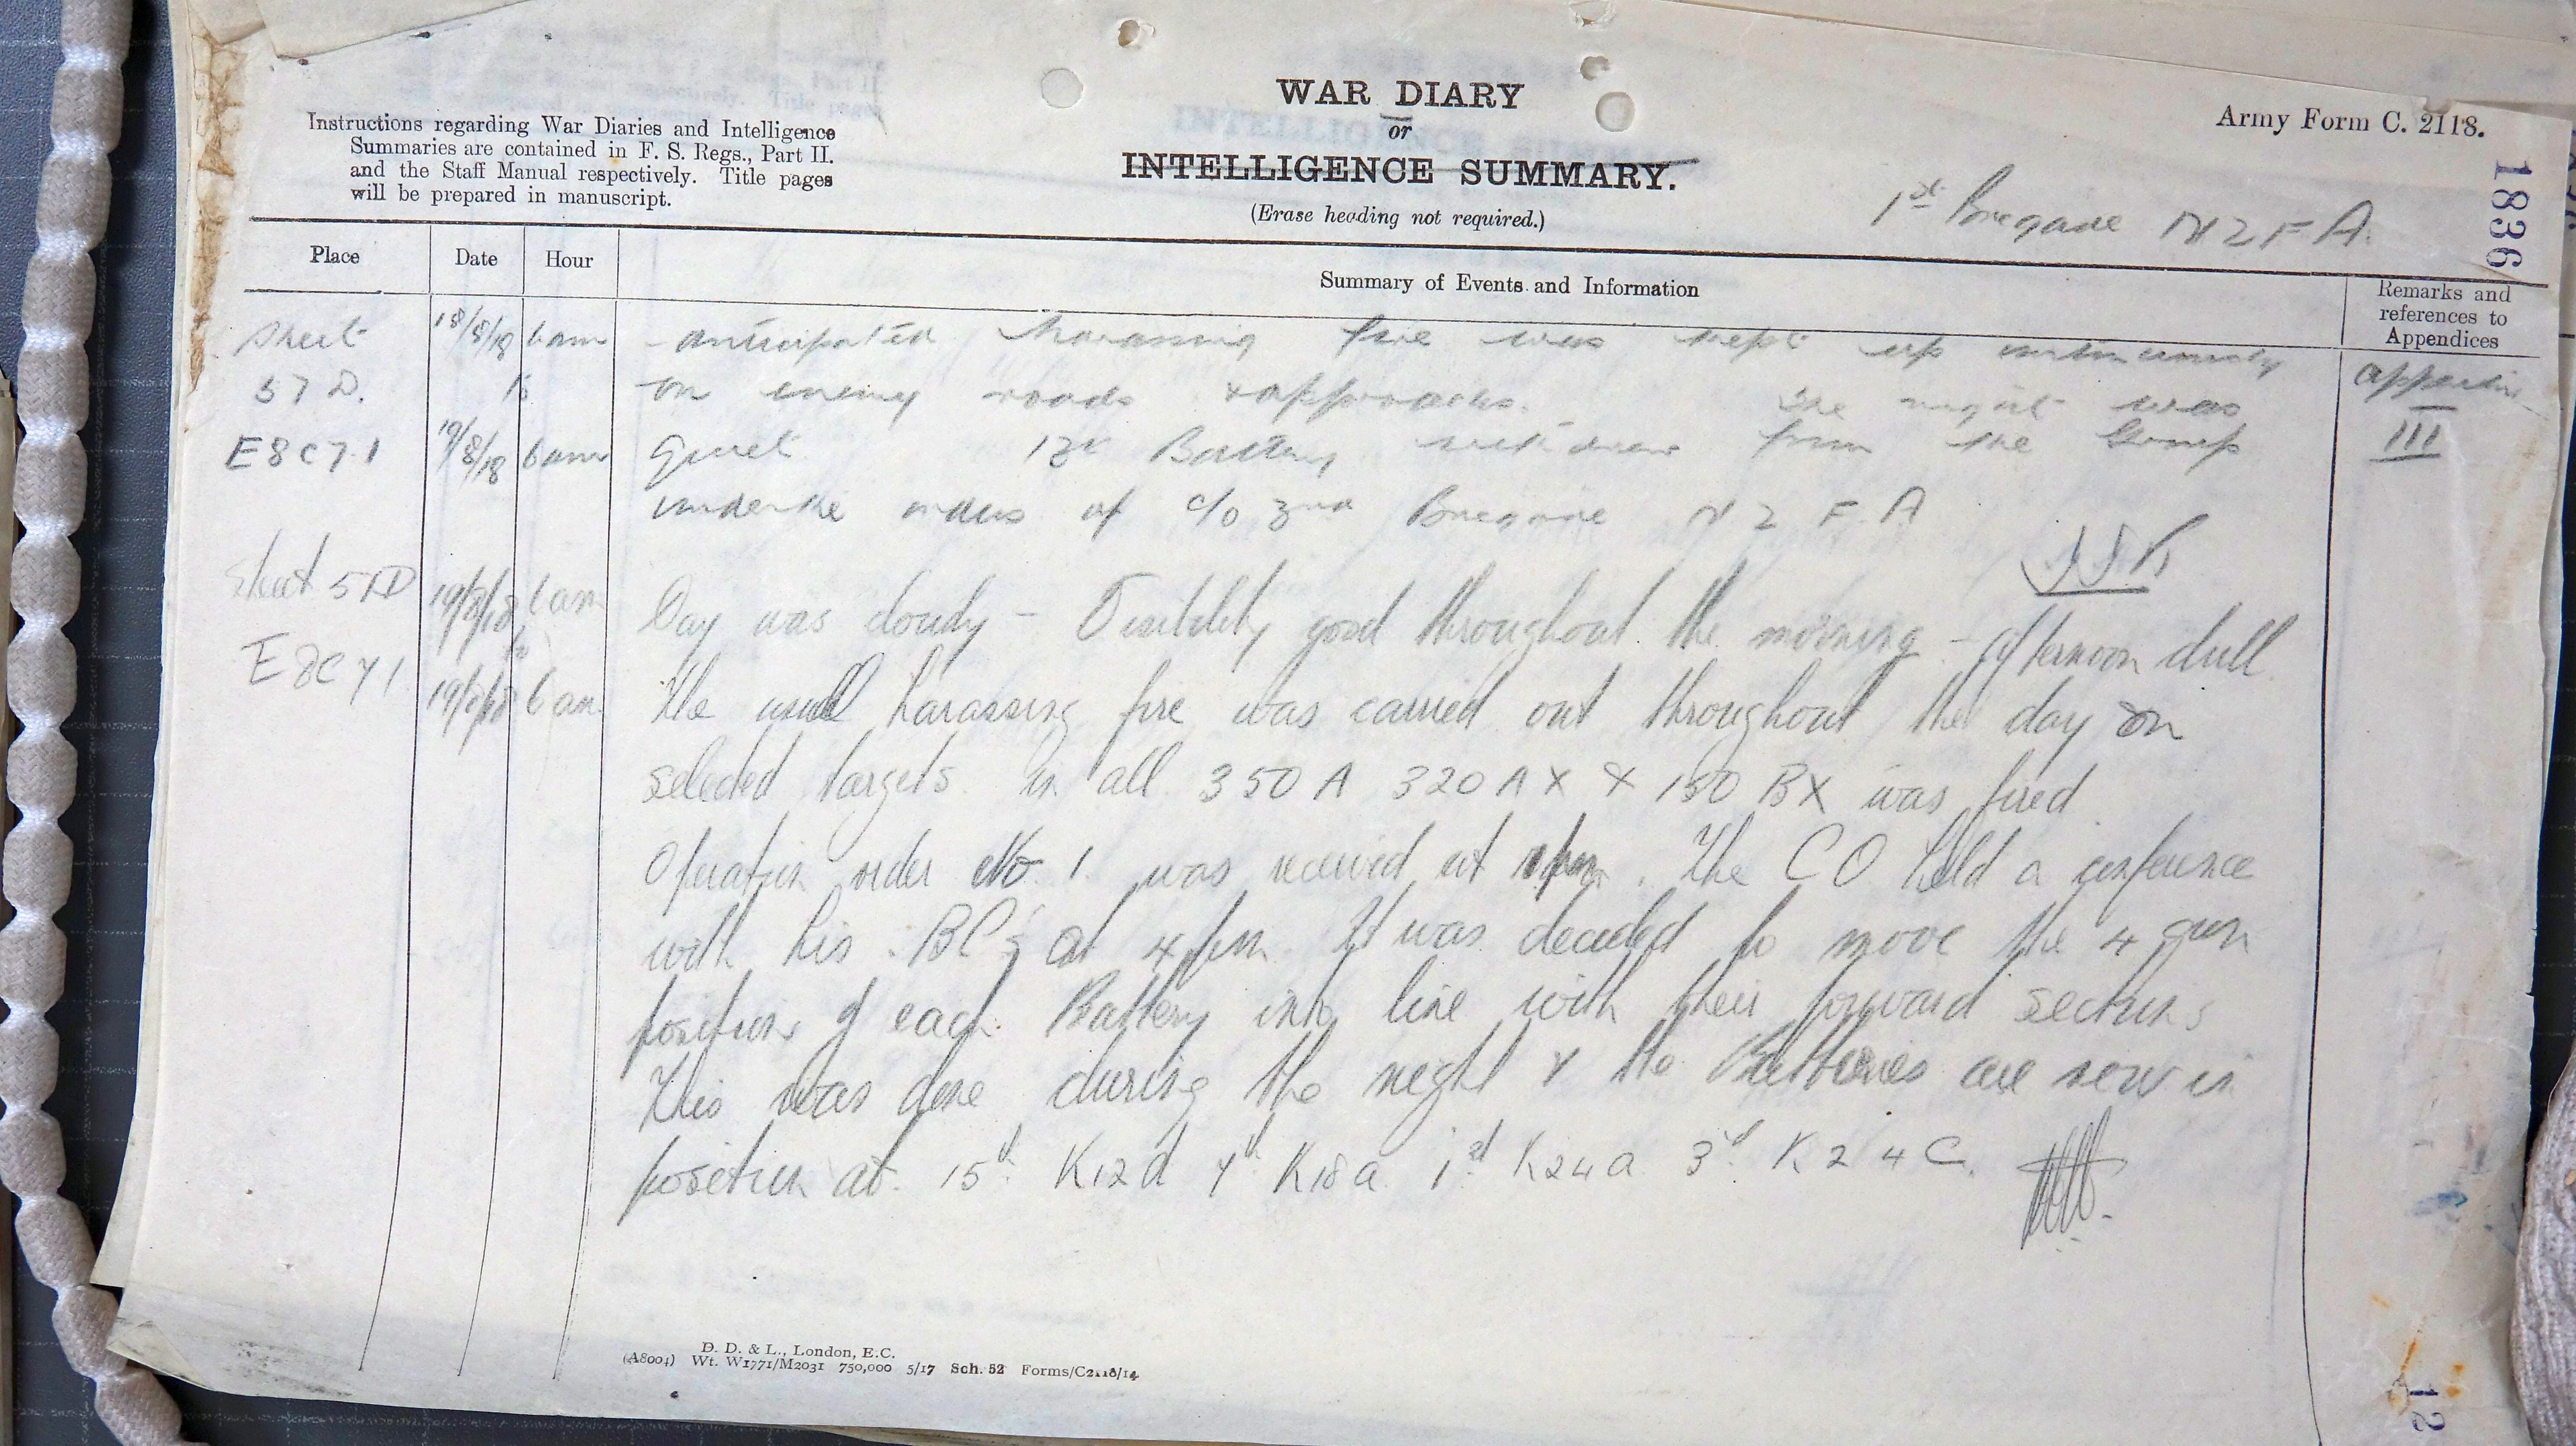 WAR DIARY
or
INTELLIGENCE SUMMARY.
(Erase heading not required.)
Instructions regarding War Diaries and Intelligence
Summaries are contained in F. S. Regs., Part II.
and the Staff Manual respectively. Title pages
will be prepared in manuscript.
Army Form C. 2118.
1836
1st Brigade NZFA.
Place Date Hour Summary of Events and Information Remarks and references to Appendices
Sheet 18/8/18 6am anticipated harassing fire was kept up continuously
57D. to on enemy roads & approaches. The night was Appendix
E8C7.1 19/8/18 6am Quiet Battery withdrew from the Group III
under the orders of C/O Brigade NZFA
Sheet 57D 19/8/18 6am Day was cloudy - Visibility good throughout the morning - afternoon dull
to
E8C71 19/8/18 6am The usual harassing fire was carried out throughout the day on
selected targets. in all 350 A 320 AX & 150 BX was fired
Operation order No. 1. was received at The CO held a conference
with his BC's at 4 pm. It was decided to move the 4 gun
positions of each Battery into line with their forward sections
This was done during the night & the Batteries are now in
position at. 15th K12d 7th K18a 1st K24a 3rd K24C.
D. D. & L., London, E.C.
(A8004) Wt. W1771/M2031 750,000 5/17 Sch. 52 Forms/C2118/14
12